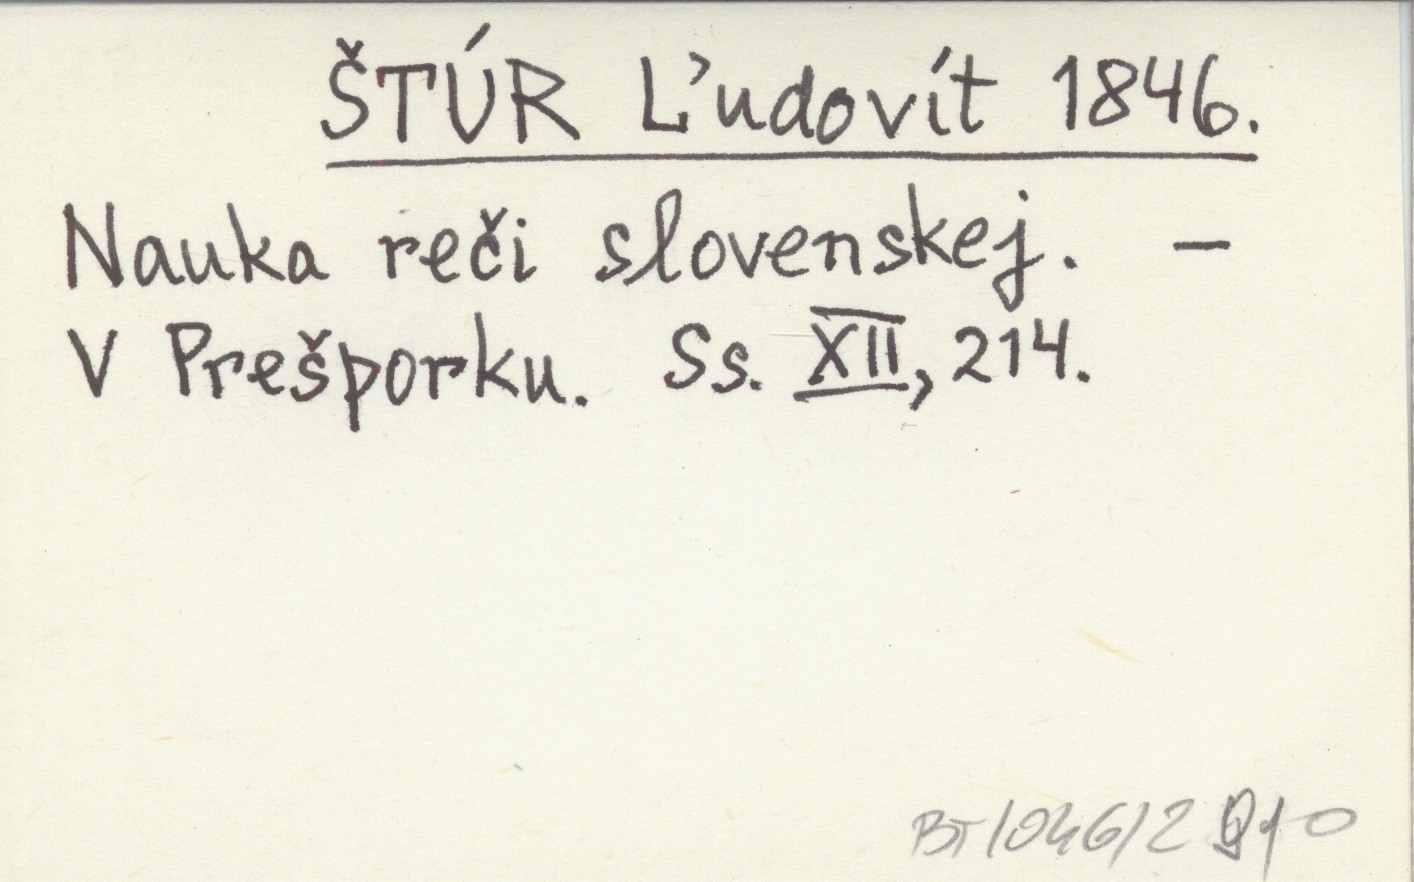 ŠTÚR Ľudovít 1846.
Nauka reči slovenskej. —
V Prešporku. Ss. XII, 214.
BT/046/2010